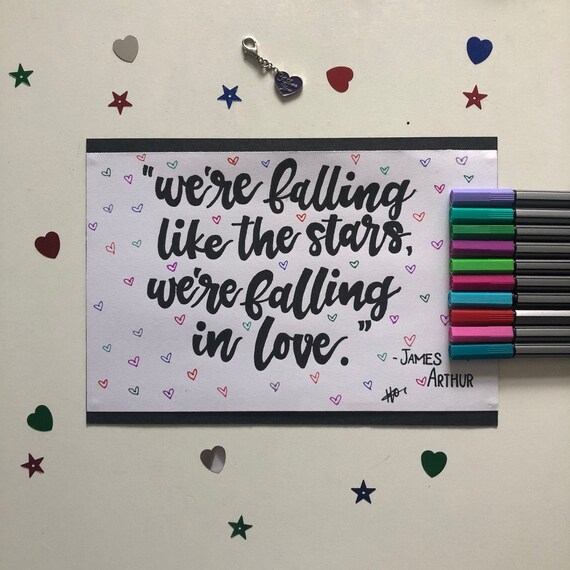 "we're falling
like the stars,
we're falling
in love."
- JAMES
ARTHUR